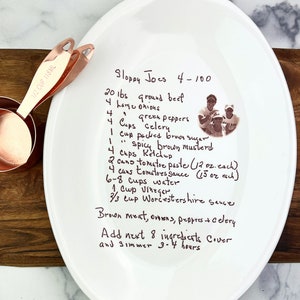 Sloppy Joes 4-100
20 lbs ground beef
4 large onions
4 " green peppers
4 Cups celery
1 cup packed brown sugar
1 " spicy brown mustard
4 cups Ketchup
2 cans tomato paste (12 oz. each)
4 cans tomato sauce (15 oz each)
6-8 cups water
1 cup vinegar
2/3 cup Worcestershire sauce
Brown meat, onions, peppers + celery
Add next 8 ingredients cover
and simmer 3-4 hours